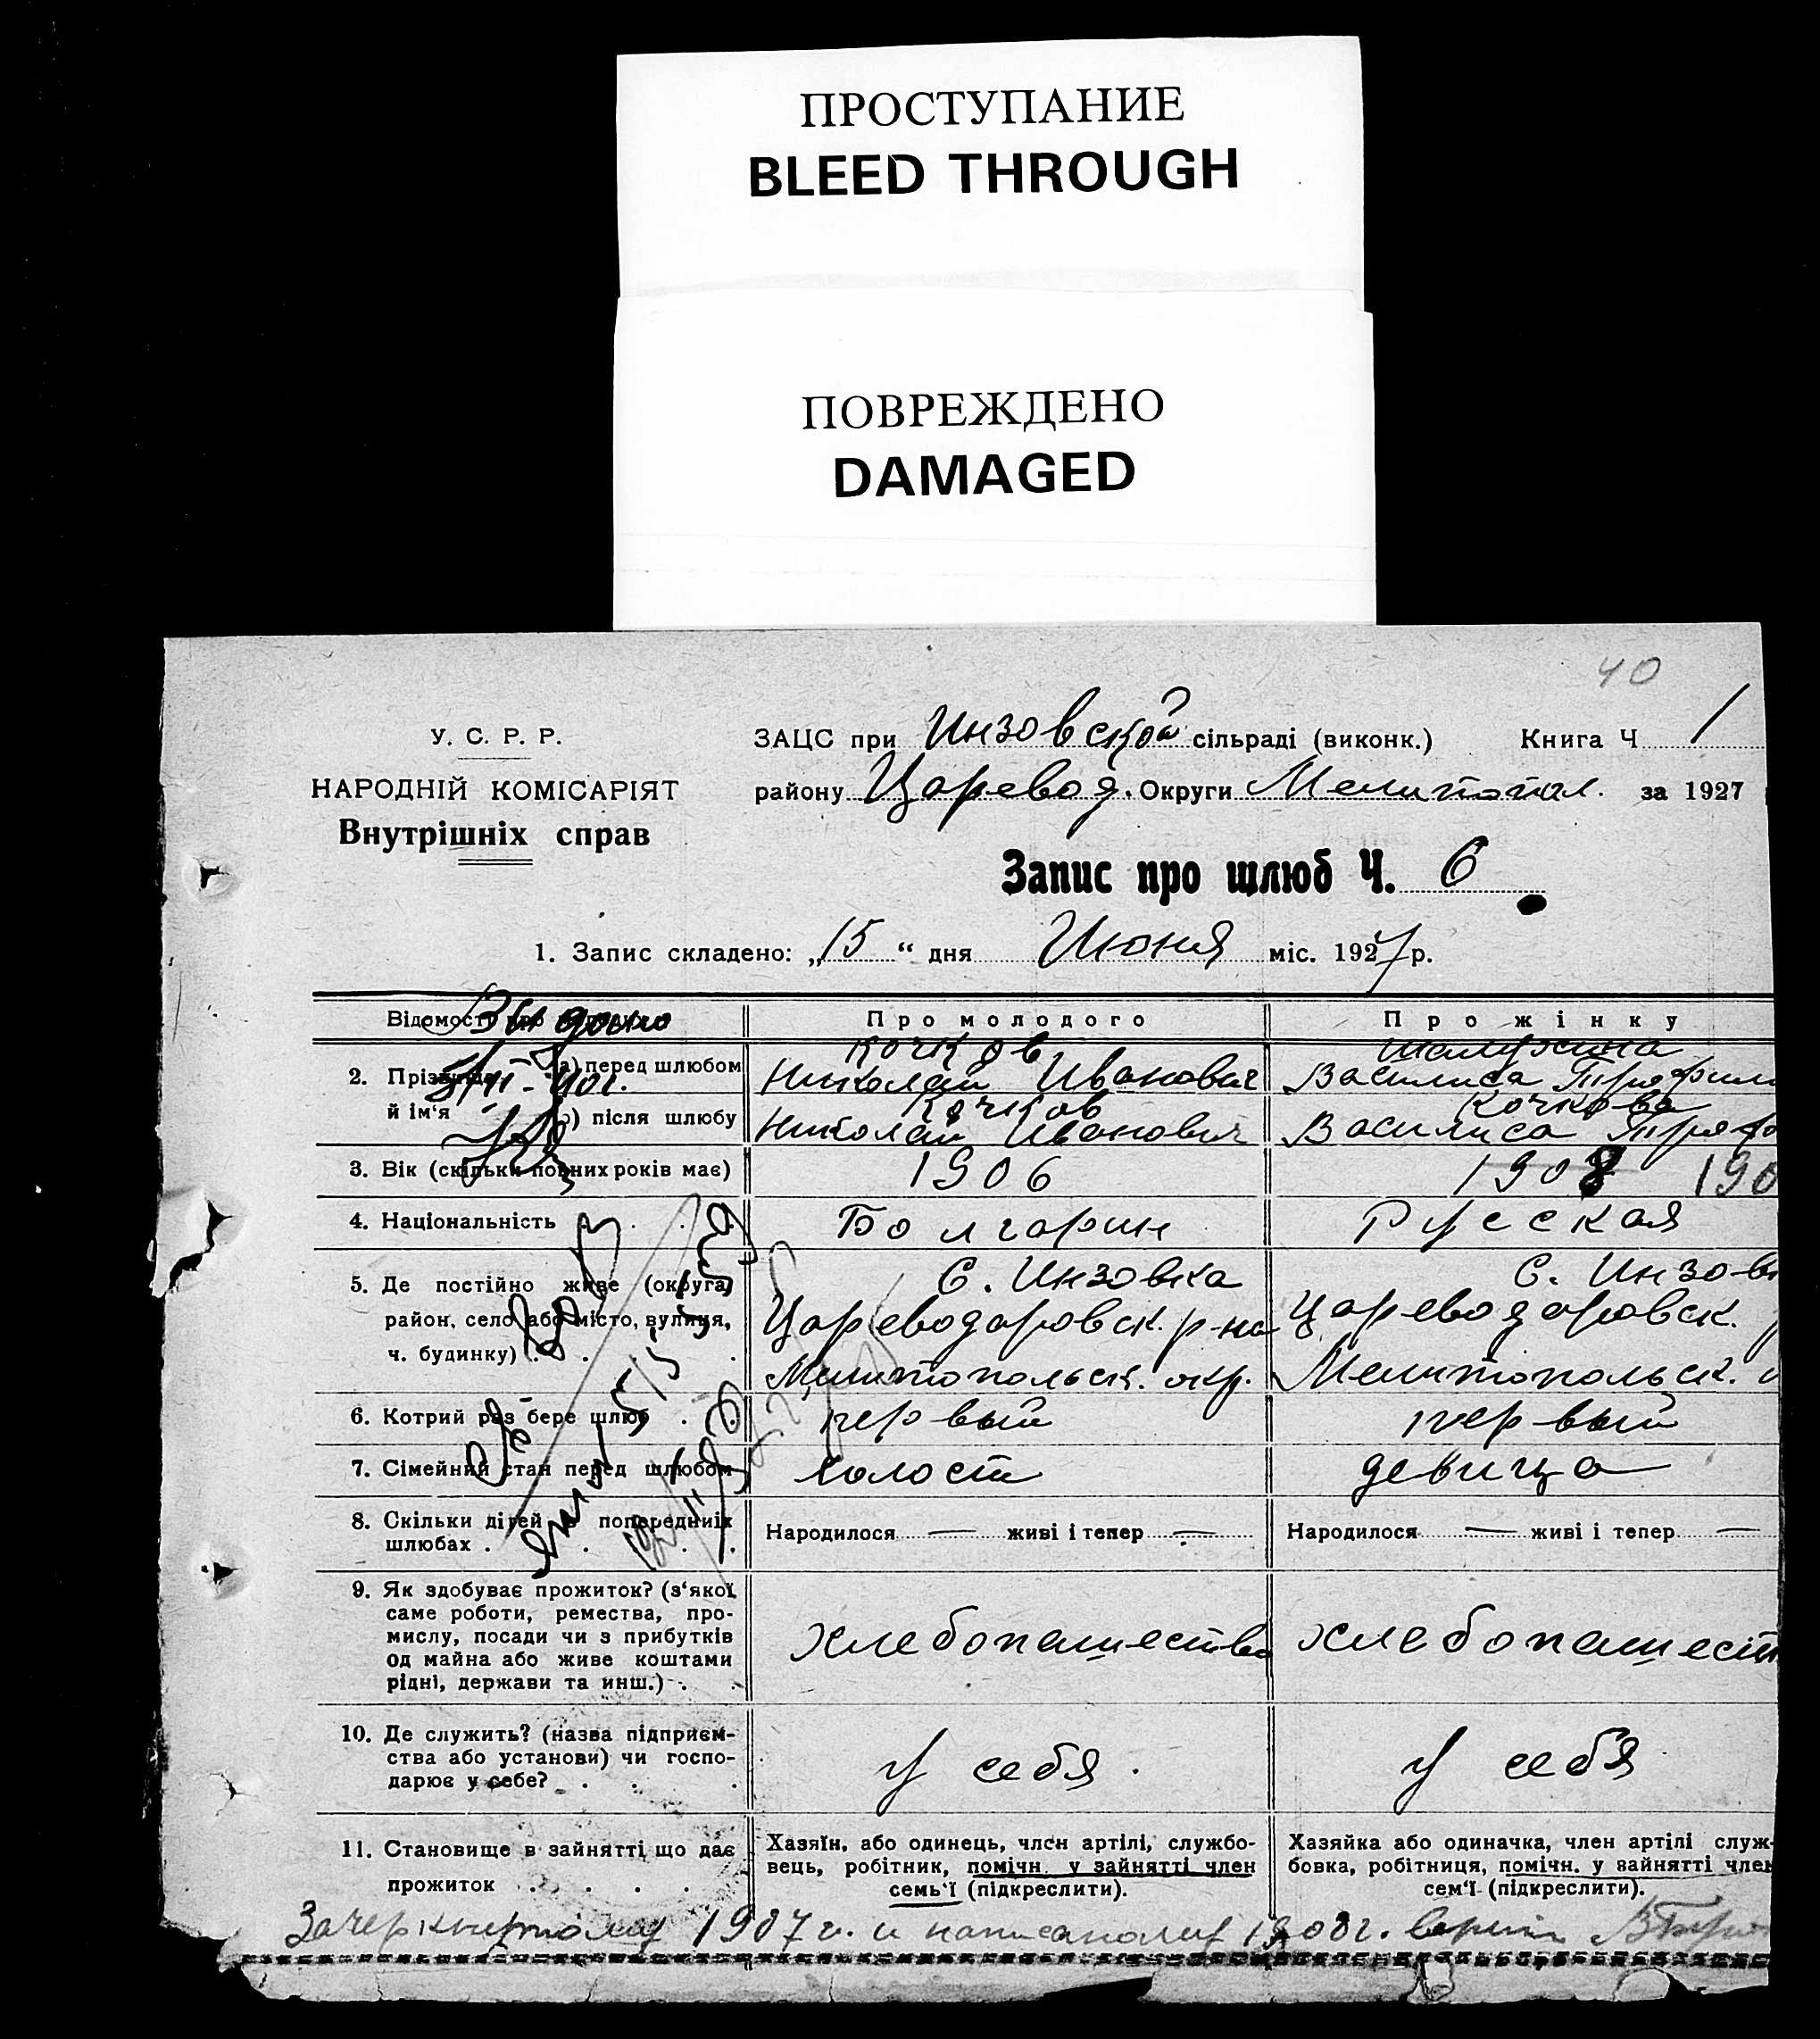 ПРОСТУПАНИЕ
BLEED THROUGH
ПОВРЕЖДЕНО
DAMAGED
40
У. С. Р. Р.
НАРОДНІЙ КОМІСАРІЯТ
Внутрішніх справ
ЗАЦС при Инзовской сільраді (виконк.) Книга Ч 1
району Царевод. Округи Мелитопол. за 1927
Запис про шлюб Ч. 6
1. Запис складено: „15“ дня Июня міс. 1927 р.
Відомості про
Про молодого
Про жінку
2. Прізвище й ім‘я
а) перед шлюбом
Кочков
Николай Иванович
Василиса
б) після шлюбу
Кочков
Николай Иванович
Кочкова
Василиса
3. Вік (скільки повних років має)
1906
1908 190
4. Національність
Болгарин
Русская
5. Де постійно живе (округа, район, село або місто, вулиця, ч. будинку)
С. Инзовка
Цареводаровск. р-на
Мелитопольск. окр.
С. Инзов
Цареводаровск.
Мелитопольск.
6. Котрий раз бере шлюб
первый
первый
7. Сімейний стан перед шлюбом
холост
девица
8. Скільки дітей в попередніх шлюбах
Народилося — живі і тепер —
Народилося — живі і тепер —
9. Як здобуває прожиток? (з‘якої саме роботи, ремества, про-
мислу, посади чи з прибутків
од майна або живе коштами
рідні, держави та инш.)
хлебопашество
хлебопашест
10. Де служить? (назва підприєм-
ства або установи) чи госпо-
дарює у себе?
у себя.
у себя
11. Становище в зайнятті що дає
прожиток
Хазяїн, або одинець, член артілі, службо-
вець, робітник, помічн. у зайнятті член
семь‘ї (підкреслити).
Хазяйка або одиначка, член артілі служ-
бовка, робітниця, помічн. у зайнятті член
сем‘ї (підкреслити).
Зачеркнутому 1907 г. и написаному 1908 г. верить